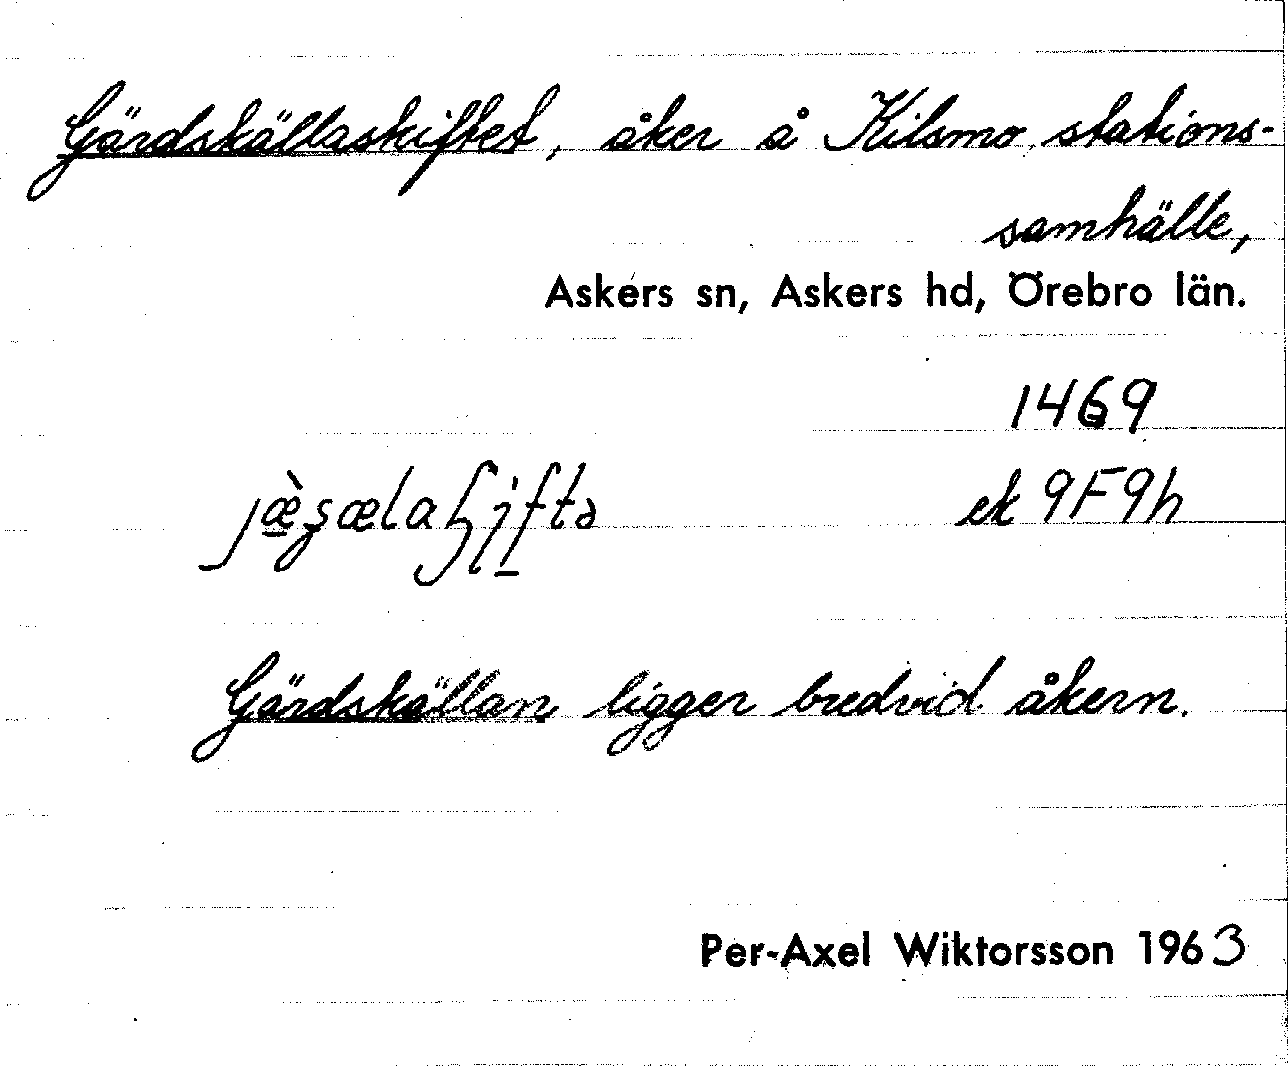 Gärdskällaskiftet, åker å Kilsmo stations-
samhälle,
Askers sn, Askers hd, Örebro län.
1469
ek 9F9h
Gärdskällan ligger bredvid åkern.
Per-Axel Wiktorsson 1963